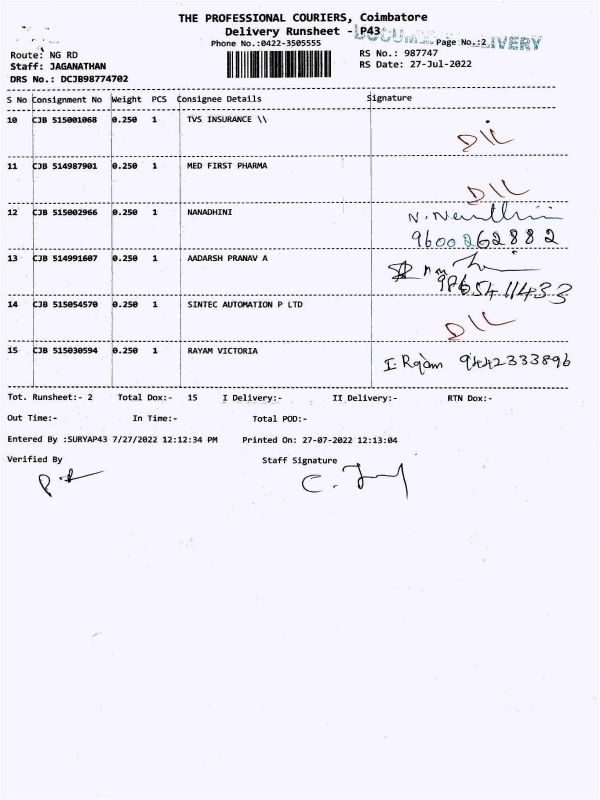 THE PROFESSIONAL COURIERS, Coimbatore
Delivery Runsheet - P43
Phone No.:0422-3505555 Page No.:2
Route: NG RD RS No.: 987747
Staff: JAGANATHAN RS Date: 27-Jul-2022
DRS No.: DCJB98774702
S No Consignment No Weight PCS Consignee Details Signature
10 CJB 515001068 0.250 1 TVS INSURANCE \\
D/L
11 CJB 514987901 0.250 1 MED FIRST PHARMA
D/L
12 CJB 515002966 0.250 1 NANADHINI
9600262882
13 CJB 514991607 0.250 1 AADARSH PRANAV A
9865411433
14 CJB 515054570 0.250 1 SINTEC AUTOMATION P LTD
D/L
15 CJB 515030594 0.250 1 RAYAM VICTORIA
9442333896
Tot. Runsheet:- 2 Total Dox:- 15 I Delivery:- II Delivery:- RTN Dox:-
Out Time:- In Time:- Total POD:-
Entered By :SURYAP43 7/27/2022 12:12:34 PM Printed On: 27-07-2022 12:13:04
Verified By Staff Signature